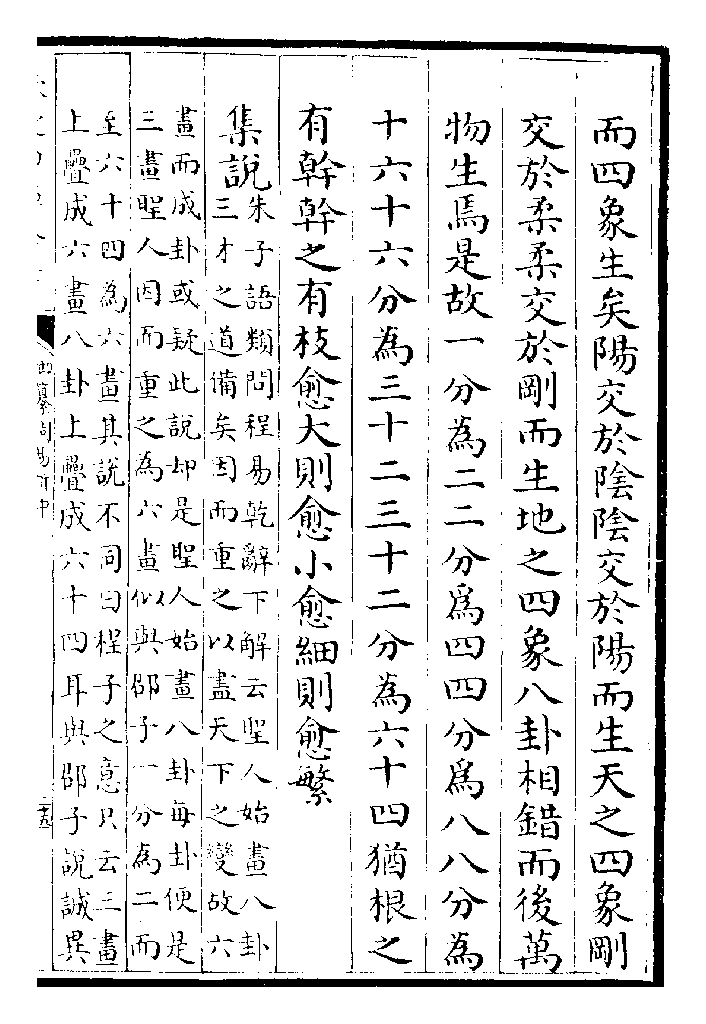 而四象生矣陽交於陰陰交於陽而生天之四象剛
交於柔柔交於剛而生地之四象八卦相錯而後萬
物生焉是故一分為二二分爲四四分爲八八分為
十六十六分為三十二三十二分為六十四猶根之
有幹幹之有枝愈大則愈小愈細則愈繁
集說
朱子語類問程易乾辭下解云聖人始畫八卦
三才之道備矣因而重之以盡天下之變故六
畫而成卦或疑此說却是聖人始畫八卦每卦便是
三畫聖人因而重之為六畫似與邵子一分為二而
至六十四為六畫其說不同曰程子之意只云三畫
上疊成六畫八卦上疊成六十四耳與邵子說誠異